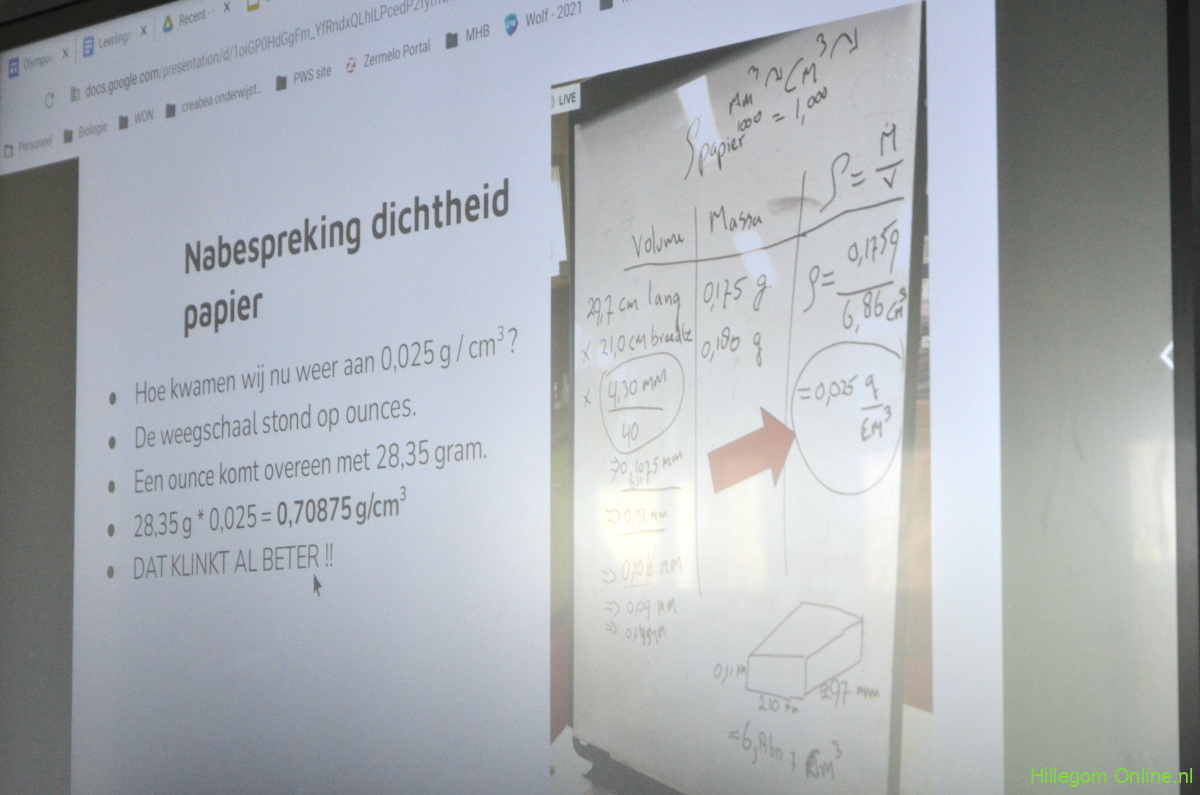 Olympus
Leerling
Recent -
docs.google.com/presentation/d/1oiGP0HdGgFm_YfRndxQLhILPcedPZIyt
Personeel
Biologie
WON
creabea onderwijst...
PWS site
Zermelo Portal
MHB
Wolf - 2021
Nabespreking dichtheid
papier
Hoe kwamen wij nu weer aan 0,025 g / cm³ ?
De weegschaal stond op ounces.
Een ounce komt overeen met 28,35 gram.
28,35 g * 0,025 = 0,70875 g/cm³
DAT KLINKT AL BETER !!
LIVE
mm³ → cm³
1000 = 1,000
ρ papier
Volume
Massa
ρ = M/V
29,7 cm lang
0,175 g
ρ = 0,175g / 6,86 cm³
x 21,0 cm breedte
0,180 g
x 4,30 mm / 40
= 0,025 g/cm³
=> 0,1075 mm
0,11
=> 0,106 mm
=> 0,09 mm
0,11 m
210 mm
297 mm
Hillegom Online.nl